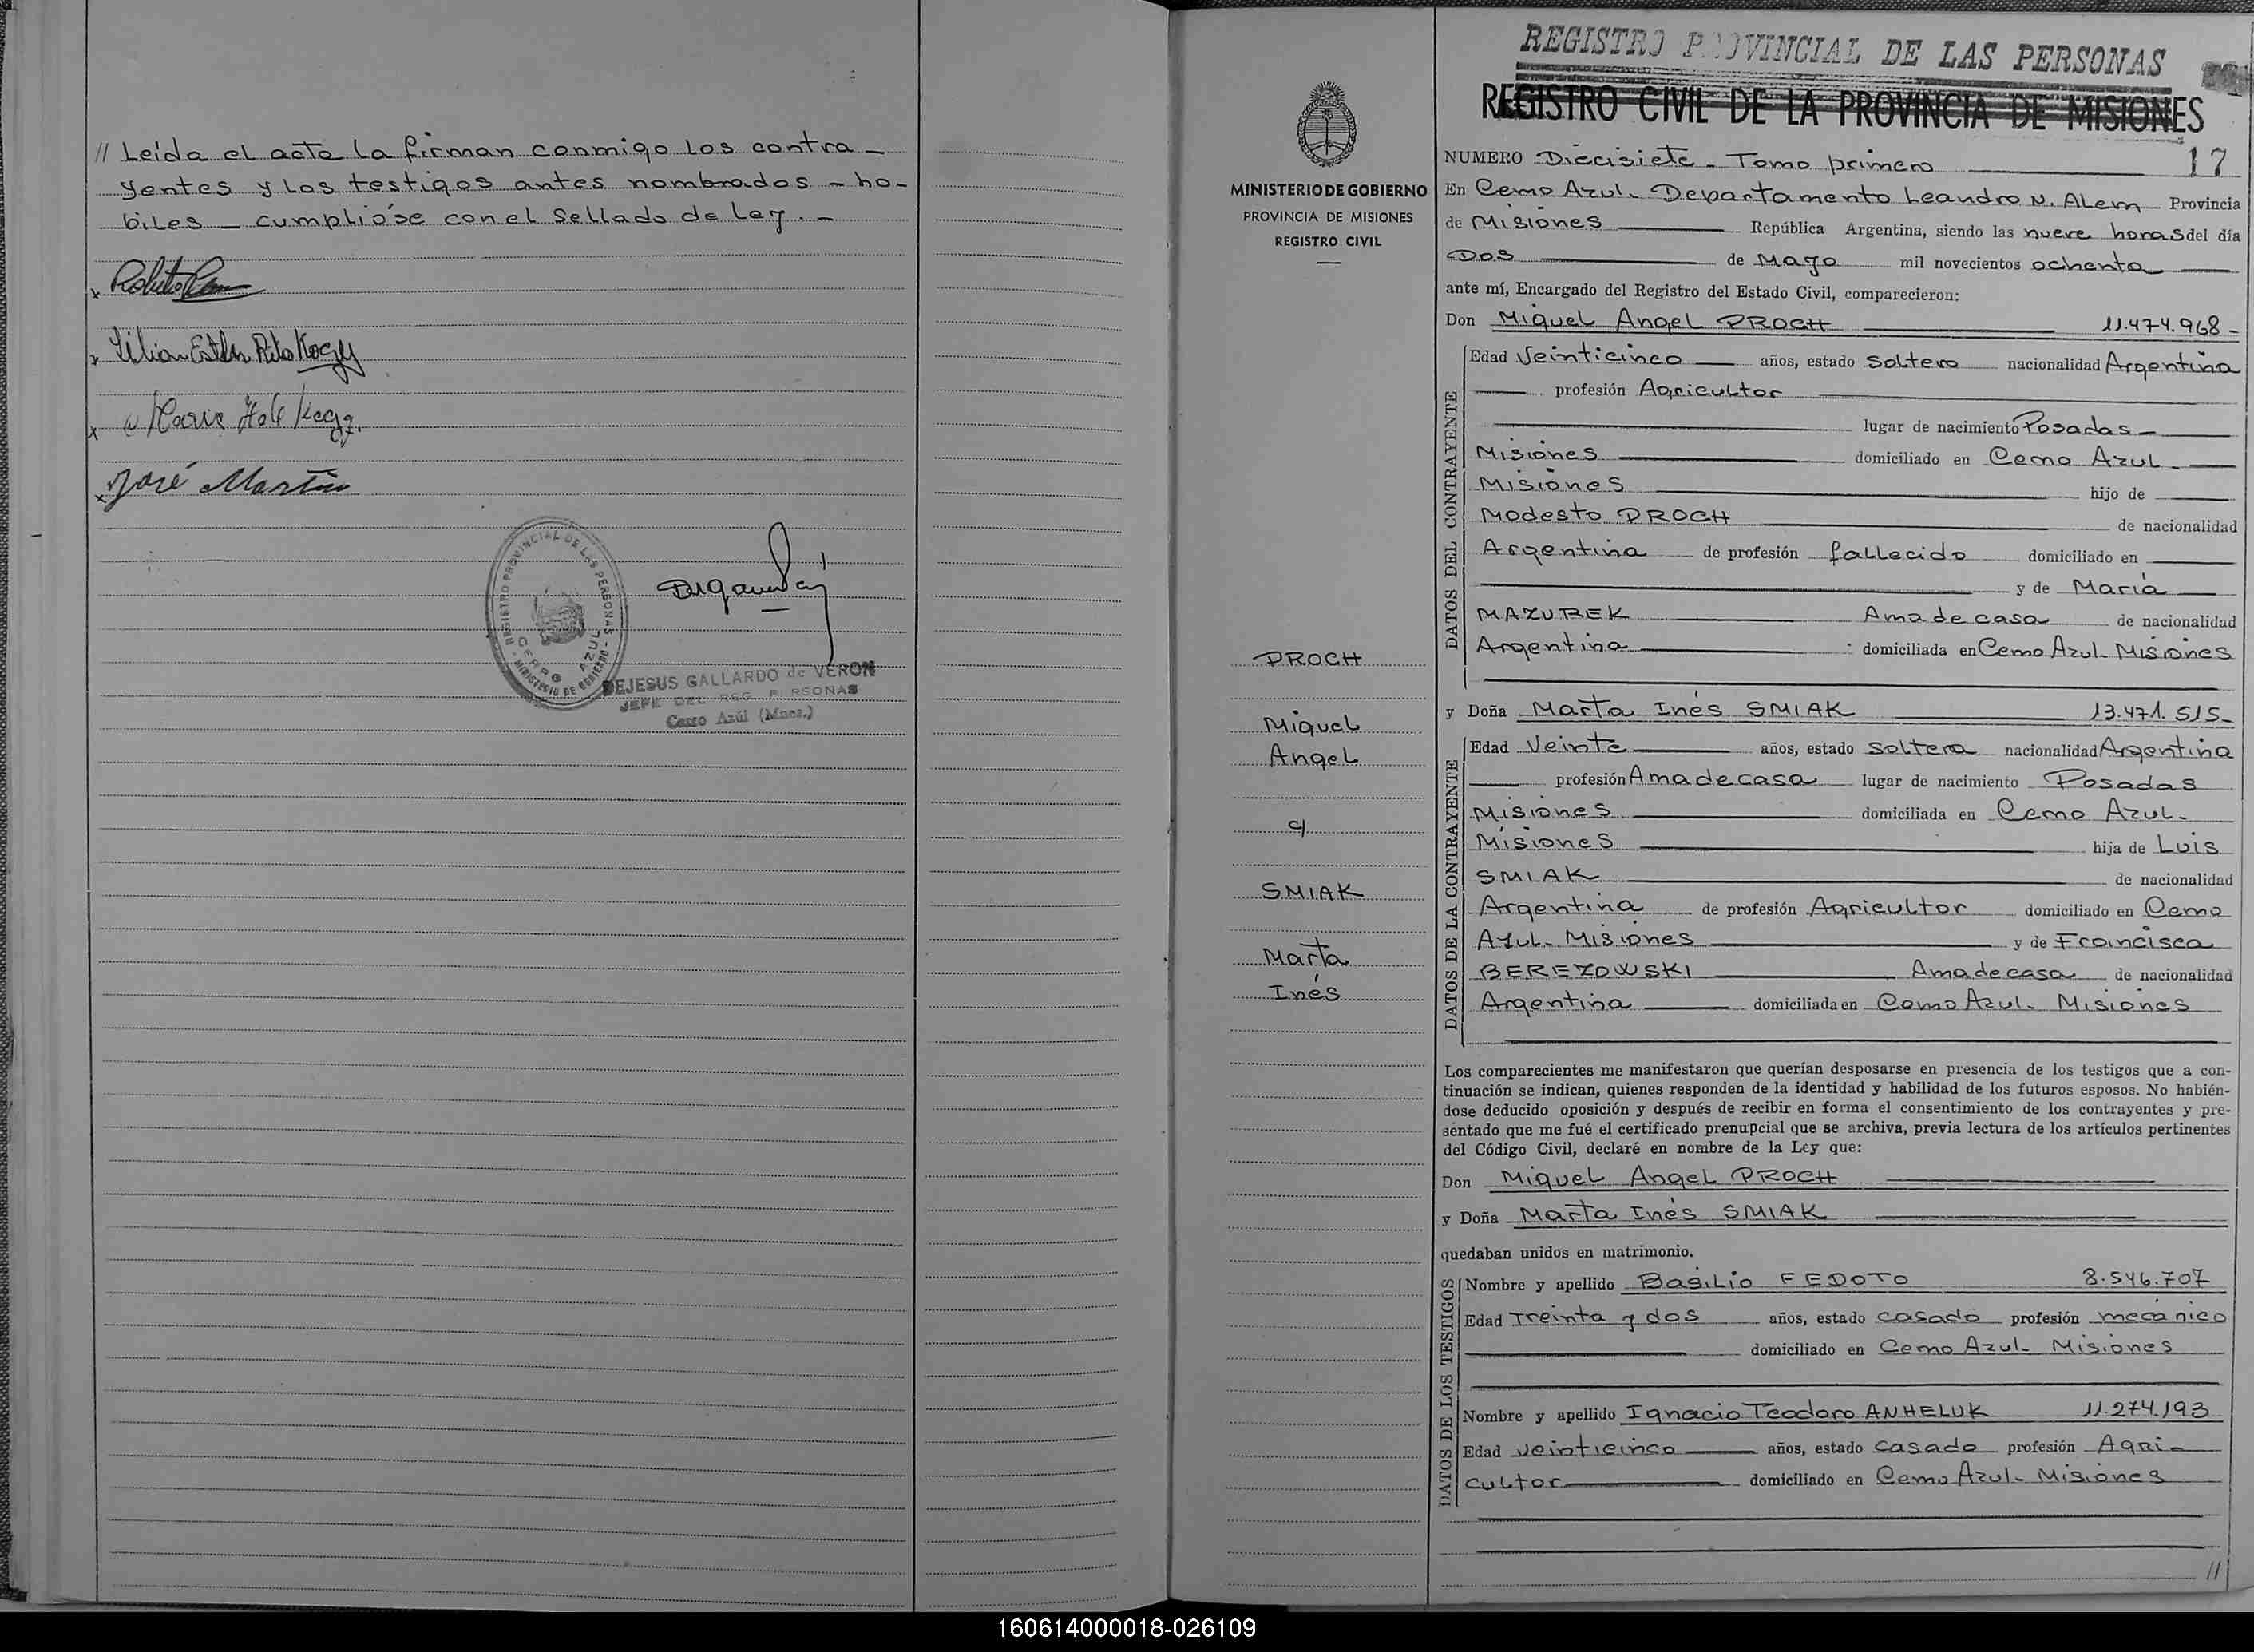 // Leída el acta la firman conmigo los contra-
yentes y los testigos antes nombrados - há-
biles - cumplióse con el Sellado de Ley. -
x Roberto
x Lilian Esther Rita Koczy
x Maria
x José Martin
REGISTRO PROVINCIAL DE LAS PERSONAS - MINISTERIO DE GOBIERNO -
CERRO AZUL
DEJESUS GALLARDO de VERON
JEFE DEL REG. PERSONAS
Cerro Azúl (Mnes.)
MINISTERIO DE GOBIERNO
PROVINCIA DE MISIONES
REGISTRO CIVIL
PROCH
Miguel
Angel
c/
SMIAK
Marta
Inés
REGISTRO PROVINCIAL DE LAS PERSONAS
REGISTRO CIVIL DE LA PROVINCIA DE MISIONES
NUMERO Diecisiete - Tomo primero 17
En Cerro Azul - Departamento Leandro N. Alem Provincia
de Misiones República Argentina, siendo las nueve horas del día
Dos de Mayo mil novecientos ochenta
ante mí, Encargado del Registro del Estado Civil, comparecieron:
Don Miguel Angel PROCH 11.474.968-
DATOS DEL CONTRAYENTE
Edad Veinticinco años, estado soltero nacionalidad Argentina
profesión Agricultor
lugar de nacimiento Posadas -
Misiones domiciliado en Cerro Azul -
Misiones hijo de
Modesto PROCH de nacionalidad
Argentina de profesión fallecido domiciliado en
y de María
MAZUREK Ama de casa de nacionalidad
Argentina domiciliada en Cerro Azul - Misiones
y Doña Marta Inés SMIAK 13.471.515-
DATOS DE LA CONTRAYENTE
Edad Veinte años, estado soltera nacionalidad Argentina
profesión Ama de casa lugar de nacimiento Posadas
Misiones domiciliada en Cerro Azul -
Misiones hija de Luis
SMIAK de nacionalidad
Argentina de profesión Agricultor domiciliado en Cerro
Azul - Misiones y de Francisca
BEREZOWSKI Ama de casa de nacionalidad
Argentina domiciliada en Cerro Azul - Misiones
Los comparecientes me manifestaron que querían desposarse en presencia de los testigos que a con-
tinuación se indican, quienes responden de la identidad y habilidad de los futuros esposos. No habién-
dose deducido oposición y después de recibir en forma el consentimiento de los contrayentes y pre-
sentado que me fué el certificado prenupcial que se archiva, previa lectura de los artículos pertinentes
del Código Civil, declaré en nombre de la Ley que:
Don Miguel Angel PROCH
y Doña Marta Inés SMIAK
quedaban unidos en matrimonio.
DATOS DE LOS TESTIGOS
Nombre y apellido Basilio FEDOTO 8.546.707
Edad Treinta y dos años, estado casado profesión mecánico
domiciliado en Cerro Azul - Misiones
Nombre y apellido Ignacio Teodoro ANHELUK 11.274.193
Edad veinticinco años, estado casado profesión Agri-
cultor domiciliado en Cerro Azul - Misiones
//
160614000018-026109